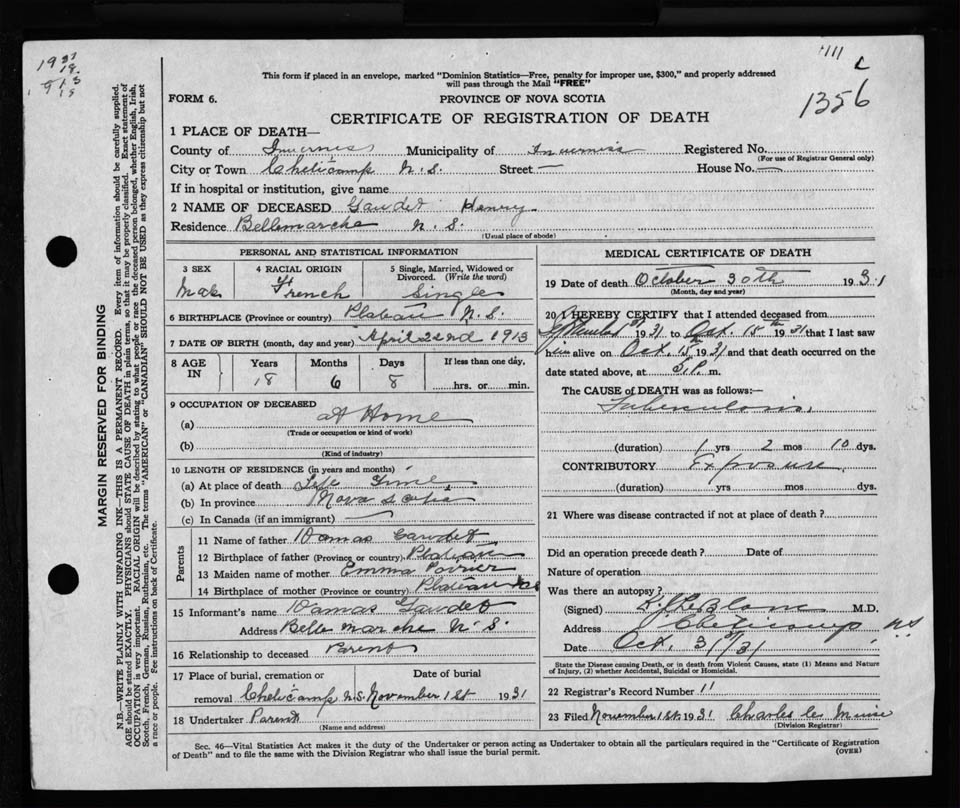 1931
18
1913
18
This form if placed in an envelope, marked "Dominion Statistics—Free, penalty for improper use, $300," and properly addressed
will pass through the Mail "FREE"
1356
FORM 6. PROVINCE OF NOVA SCOTIA
CERTIFICATE OF REGISTRATION OF DEATH
1 PLACE OF DEATH—
County of Inverness Municipality of Inverness Registered No.
(For use of Registrar General only)
City or Town Cheticamp N.S. Street — House No. —
If in hospital or institution, give name
2 NAME OF DECEASED Gaudet Henry
Residence Bellemarche N.S.
(Usual place of abode)
PERSONAL AND STATISTICAL INFORMATION
3 SEX 4 RACIAL ORIGIN 5 Single, Married, Widowed or Divorced. (Write the word)
Male French Single
6 BIRTHPLACE (Province or country) Plateau N.S.
7 DATE OF BIRTH (month, day and year) April 22nd 1913
8 AGE IN Years Months Days If less than one day,
18 6 8 hrs. or min.
9 OCCUPATION OF DECEASED
(a) at Home
(Trade or occupation or kind of work)
(b)
(Kind of industry)
10 LENGTH OF RESIDENCE (in years and months)
(a) At place of death Life time
(b) In province Nova Scotia
(c) In Canada (if an immigrant) —
Parents
11 Name of father Damas Gaudet
12 Birthplace of father (Province or country) Plateau
13 Maiden name of mother Emma Poirier
14 Birthplace of mother (Province or country) Plateau N.S.
15 Informant's name Damas Gaudet
Address Belle marche N.S.
16 Relationship to deceased Parent
17 Place of burial, cremation or removal Date of burial
Cheticamp N.S. November 1st 1931
18 Undertaker Parents
(Name and address)
MEDICAL CERTIFICATE OF DEATH
19 Date of death October 30th 1931
(Month, day and year)
20 I HEREBY CERTIFY that I attended deceased from
1931 to Oct. 15th 31 that I last saw
him alive on Oct. 15 1931 and that death occurred on the
date stated above, at 5 P. m.
The CAUSE of DEATH was as follows:—
Tuberculosis.
(duration) 1 yrs 2 mos 10 dys.
CONTRIBUTORY Exposure
(duration) yrs mos dys.
21 Where was disease contracted if not at place of death?
Did an operation precede death? Date of
Nature of operation
Was there an autopsy?
(Signed) LeBlanc M.D.
Address Cheticamp N.S.
Date Oct. 31st/31
State the Disease causing Death, or in death from Violent Causes, state (1) Means and Nature
of Injury, (2) whether Accidental, Suicidal or Homicidal.
22 Registrar's Record Number 11
23 Filed November 1st 1931 Charles
(Division Registrar)
Sec. 46—Vital Statistics Act makes it the duty of the Undertaker or person acting as Undertaker to obtain all the particulars required in the "Certificate of Registration
of Death" and to file the same with the Division Registrar who shall issue the burial permit. (OVER)
MARGIN RESERVED FOR BINDING
N.B.—WRITE PLAINLY WITH UNFADING INK—THIS IS A PERMANENT RECORD. Every item of information should be carefully supplied.
AGE should be stated EXACTLY. PHYSICIANS should STATE CAUSE OF DEATH in plain terms, so that it may be properly classified. Exact statement of
OCCUPATION is very important. RACIAL ORIGIN will be described by stating to what people or race the deceased person belonged, whether English, Irish,
Scotch, French, German, Russian, Ruthenian, etc. The terms "AMERICAN" or "CANADIAN" SHOULD NOT BE USED as they express citizenship but not
a race or people. Fee instructions on back of Certificate.